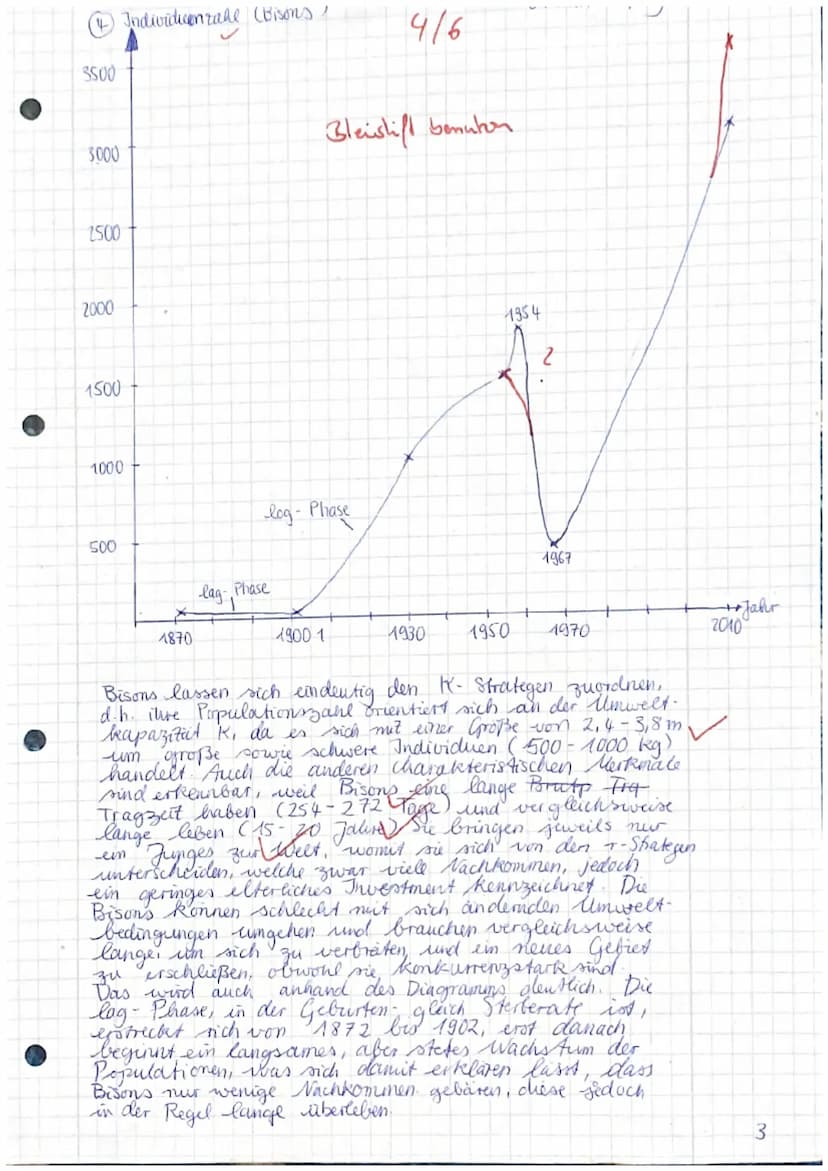 ④ Individuenzahl (Bisons)
4/6
3500
Bleistift benutzen
3000
2500
2000
1954
?
1500
1000
log-Phase
500
1967
lag-Phase
Jahr
1870
1900 1
1930
1950
1970
2010
Bisons lassen sich eindeutig den K-Strategen zuordnen,
d.h. ihre Populationszahl orientiert sich an der Umwelt-
kapazität K, da es sich mit einer Größe von 2,4-3,8m
um große sowie schwere Individuen (500-1000 kg)
handelt. Auch die anderen charakteristischen Merkmale
sind erkennbar, weil Bisons eine lange Brutp Trg
Tragzeit haben (254-272 Tage) und vergleichsweise
lange leben (15-20 Jahre). Sie bringen jeweils nur
ein Junges zur Welt, womit sie sich von den r-Strategen
unterscheiden, welche zwar viele Nachkommen, jedoch
ein geringes elterliches Investment kennzeichnet. Die
Bisons können schlecht mit sich ändernden Umwelt-
bedingungen umgehen und brauchen vergleichsweise
lange, um sich zu verbreiten und ein neues Gebiet
zu erschließen, obwohl sie konkurrenzstark sind.
Das wird auch anhand des Diagramms deutlich. Die
lag-Phase, in der Geburten- gleich Sterberate ist,
erstreckt sich von 1872 bis 1902, erst danach
beginnt ein langsames, aber stetes Wachstum der
Populationen, was sich damit erklären lässt, dass
Bisons nur wenige Nachkommen gebären, diese jedoch
in der Regel lange überleben.
3